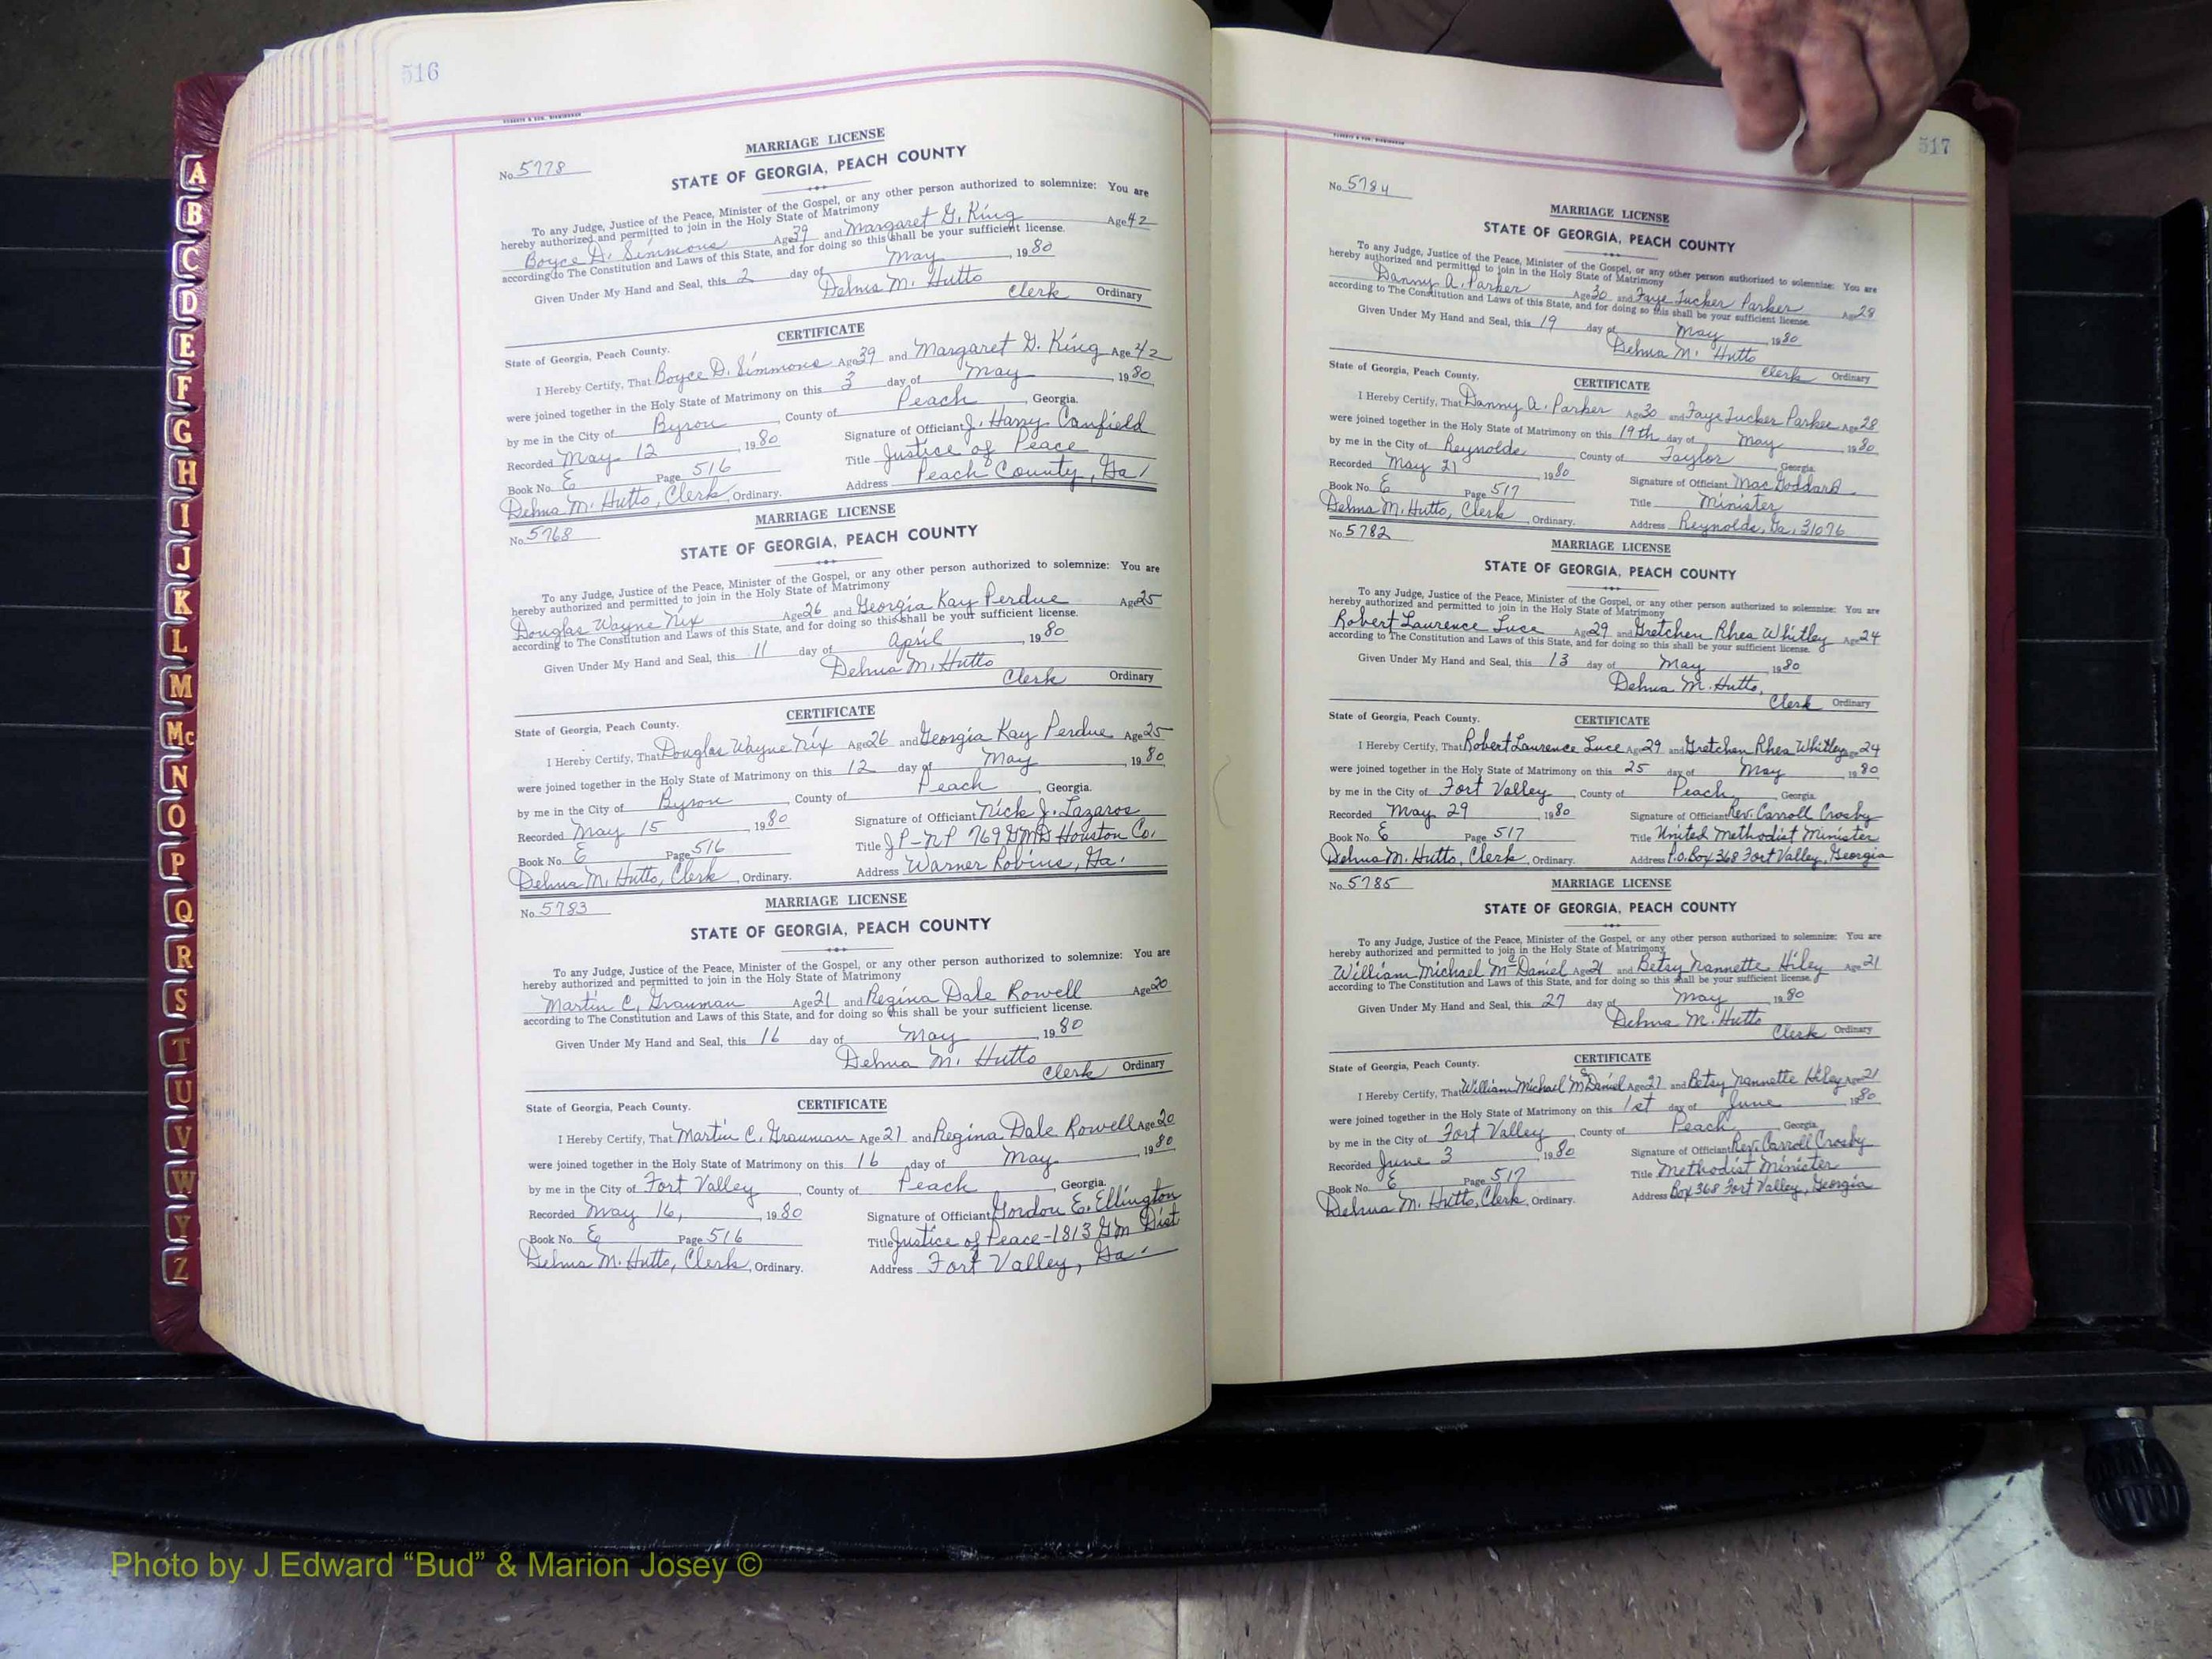 516
MARRIAGE LICENSE
No. 5778
STATE OF GEORGIA, PEACH COUNTY
To any Judge, Justice of the Peace, Minister of the Gospel, or any other person authorized to solemnize: You are
hereby authorized and permitted to join in the Holy State of Matrimony
Boyce D. Simmons Age 39 and Margaret G. King Age 42
according to The Constitution and Laws of this State, and for doing so this shall be your sufficient license.
Given Under My Hand and Seal, this 2 day of May, 1980
Delma M. Hutto
Clerk Ordinary
CERTIFICATE
State of Georgia, Peach County.
I Hereby Certify, That Boyce D. Simmons Age 39 and Margaret D. King Age 42
were joined together in the Holy State of Matrimony on this 3 day of May, 1980
by me in the City of Byron, County of Peach, Georgia.
Recorded May 12, 1980 Signature of Officiant J. Harry Canfield
Book No. E Page 516 Title Justice of Peace
Delma M. Hutto, Clerk, Ordinary. Address Peach County, Ga.
MARRIAGE LICENSE
No. 5768
STATE OF GEORGIA, PEACH COUNTY
To any Judge, Justice of the Peace, Minister of the Gospel, or any other person authorized to solemnize: You are
hereby authorized and permitted to join in the Holy State of Matrimony
Douglas Wayne Nix Age 26 and Georgia Kay Perdue Age 25
according to The Constitution and Laws of this State, and for doing so this shall be your sufficient license.
Given Under My Hand and Seal, this 11 day of April, 1980
Delma M. Hutto
Clerk Ordinary
CERTIFICATE
State of Georgia, Peach County.
I Hereby Certify, That Douglas Wayne Nix Age 26 and Georgia Kay Perdue Age 25
were joined together in the Holy State of Matrimony on this 12 day of May, 1980
by me in the City of Byron, County of Peach, Georgia.
Recorded May 15, 1980 Signature of Officiant Nick J. Lazaros
Book No. E Page 516 Title JP-NP 769 GMD Houston Co.
Delma M. Hutto, Clerk, Ordinary. Address Warner Robins, Ga.
MARRIAGE LICENSE
No. 5783
STATE OF GEORGIA, PEACH COUNTY
To any Judge, Justice of the Peace, Minister of the Gospel, or any other person authorized to solemnize: You are
hereby authorized and permitted to join in the Holy State of Matrimony
Martin C. Grauman Age 21 and Regina Dale Rowell Age 20
according to The Constitution and Laws of this State, and for doing so this shall be your sufficient license.
Given Under My Hand and Seal, this 16 day of May, 1980
Delma M. Hutto
Clerk Ordinary
CERTIFICATE
State of Georgia, Peach County.
I Hereby Certify, That Martin C. Grauman Age 21 and Regina Dale Rowell Age 20
were joined together in the Holy State of Matrimony on this 16 day of May 1980
by me in the City of Fort Valley, County of Peach, Georgia.
Recorded May 16, 1980 Signature of Officiant Gordon E. Ellington
Book No. E Page 516 Title Justice of Peace-1813 GM Dist
Delma M. Hutto, Clerk, Ordinary. Address Fort Valley, Ga.
517
No. 5784
MARRIAGE LICENSE
STATE OF GEORGIA, PEACH COUNTY
To any Judge, Justice of the Peace, Minister of the Gospel, or any other person authorized to solemnize: You are
hereby authorized and permitted to join in the Holy State of Matrimony
Danny A. Parker Age 30 and Faye Tucker Parker Age 28
according to The Constitution and Laws of this State, and for doing so this shall be your sufficient license.
Given Under My Hand and Seal, this 19 day of May, 1980
Delma M. Hutto
Clerk Ordinary
State of Georgia, Peach County.
CERTIFICATE
I Hereby Certify, That Danny A. Parker Age 30 and Faye Tucker Parker Age 28
were joined together in the Holy State of Matrimony on this 19th day of May, 1980
by me in the City of Reynolds, County of Taylor, Georgia.
Recorded May 21, 1980 Signature of Officiant Mac Goddard
Book No. E Page 517 Title Minister
Delma M. Hutto, Clerk, Ordinary. Address Reynolds, Ga, 31076
No. 5782
MARRIAGE LICENSE
STATE OF GEORGIA, PEACH COUNTY
To any Judge, Justice of the Peace, Minister of the Gospel, or any other person authorized to solemnize: You are
hereby authorized and permitted to join in the Holy State of Matrimony
Robert Laurence Luce Age 29 and Gretchen Rhea Whitley Age 24
according to The Constitution and Laws of this State, and for doing so this shall be your sufficient license.
Given Under My Hand and Seal, this 13 day of May, 1980
Delma M. Hutto,
Clerk Ordinary
State of Georgia, Peach County.
CERTIFICATE
I Hereby Certify, That Robert Laurence Luce Age 29 and Gretchen Rhea Whitley Age 24
were joined together in the Holy State of Matrimony on this 25 day of May, 1980
by me in the City of Fort Valley, County of Peach, Georgia.
Recorded May 29, 1980 Signature of Officiant Rev. Carroll Crosby
Book No. E Page 517 Title United Methodist Minister
Delma M. Hutto, Clerk, Ordinary. Address P.O. Box 368 Fort Valley, Georgia
No. 5785
MARRIAGE LICENSE
STATE OF GEORGIA, PEACH COUNTY
To any Judge, Justice of the Peace, Minister of the Gospel, or any other person authorized to solemnize: You are
hereby authorized and permitted to join in the Holy State of Matrimony
William Michael McDaniel Age 21 and Betsy Nannette Hiley Age 21
according to The Constitution and Laws of this State, and for doing so this shall be your sufficient license.
Given Under My Hand and Seal, this 27 day of May, 1980
Delma M. Hutto
Clerk Ordinary
State of Georgia, Peach County.
CERTIFICATE
I Hereby Certify, That William Michael McDaniel Age 21 and Betsy Nannette Hiley Age 21
were joined together in the Holy State of Matrimony on this 1st day of June, 1980
by me in the City of Fort Valley, County of Peach, Georgia.
Recorded June 3, 1980 Signature of Officiant Rev. Carroll Crosby
Book No. E Page 517 Title Methodist Minister
Delma M. Hutto, Clerk, Ordinary. Address Box 368 Fort Valley, Georgia
A
B
C
D
E
F
G
H
I
J
K
L
M
Mc
N
O
P
Q
R
S
T
U
V
W
Y
Z
Photo by J Edward “Bud” & Marion Josey ©